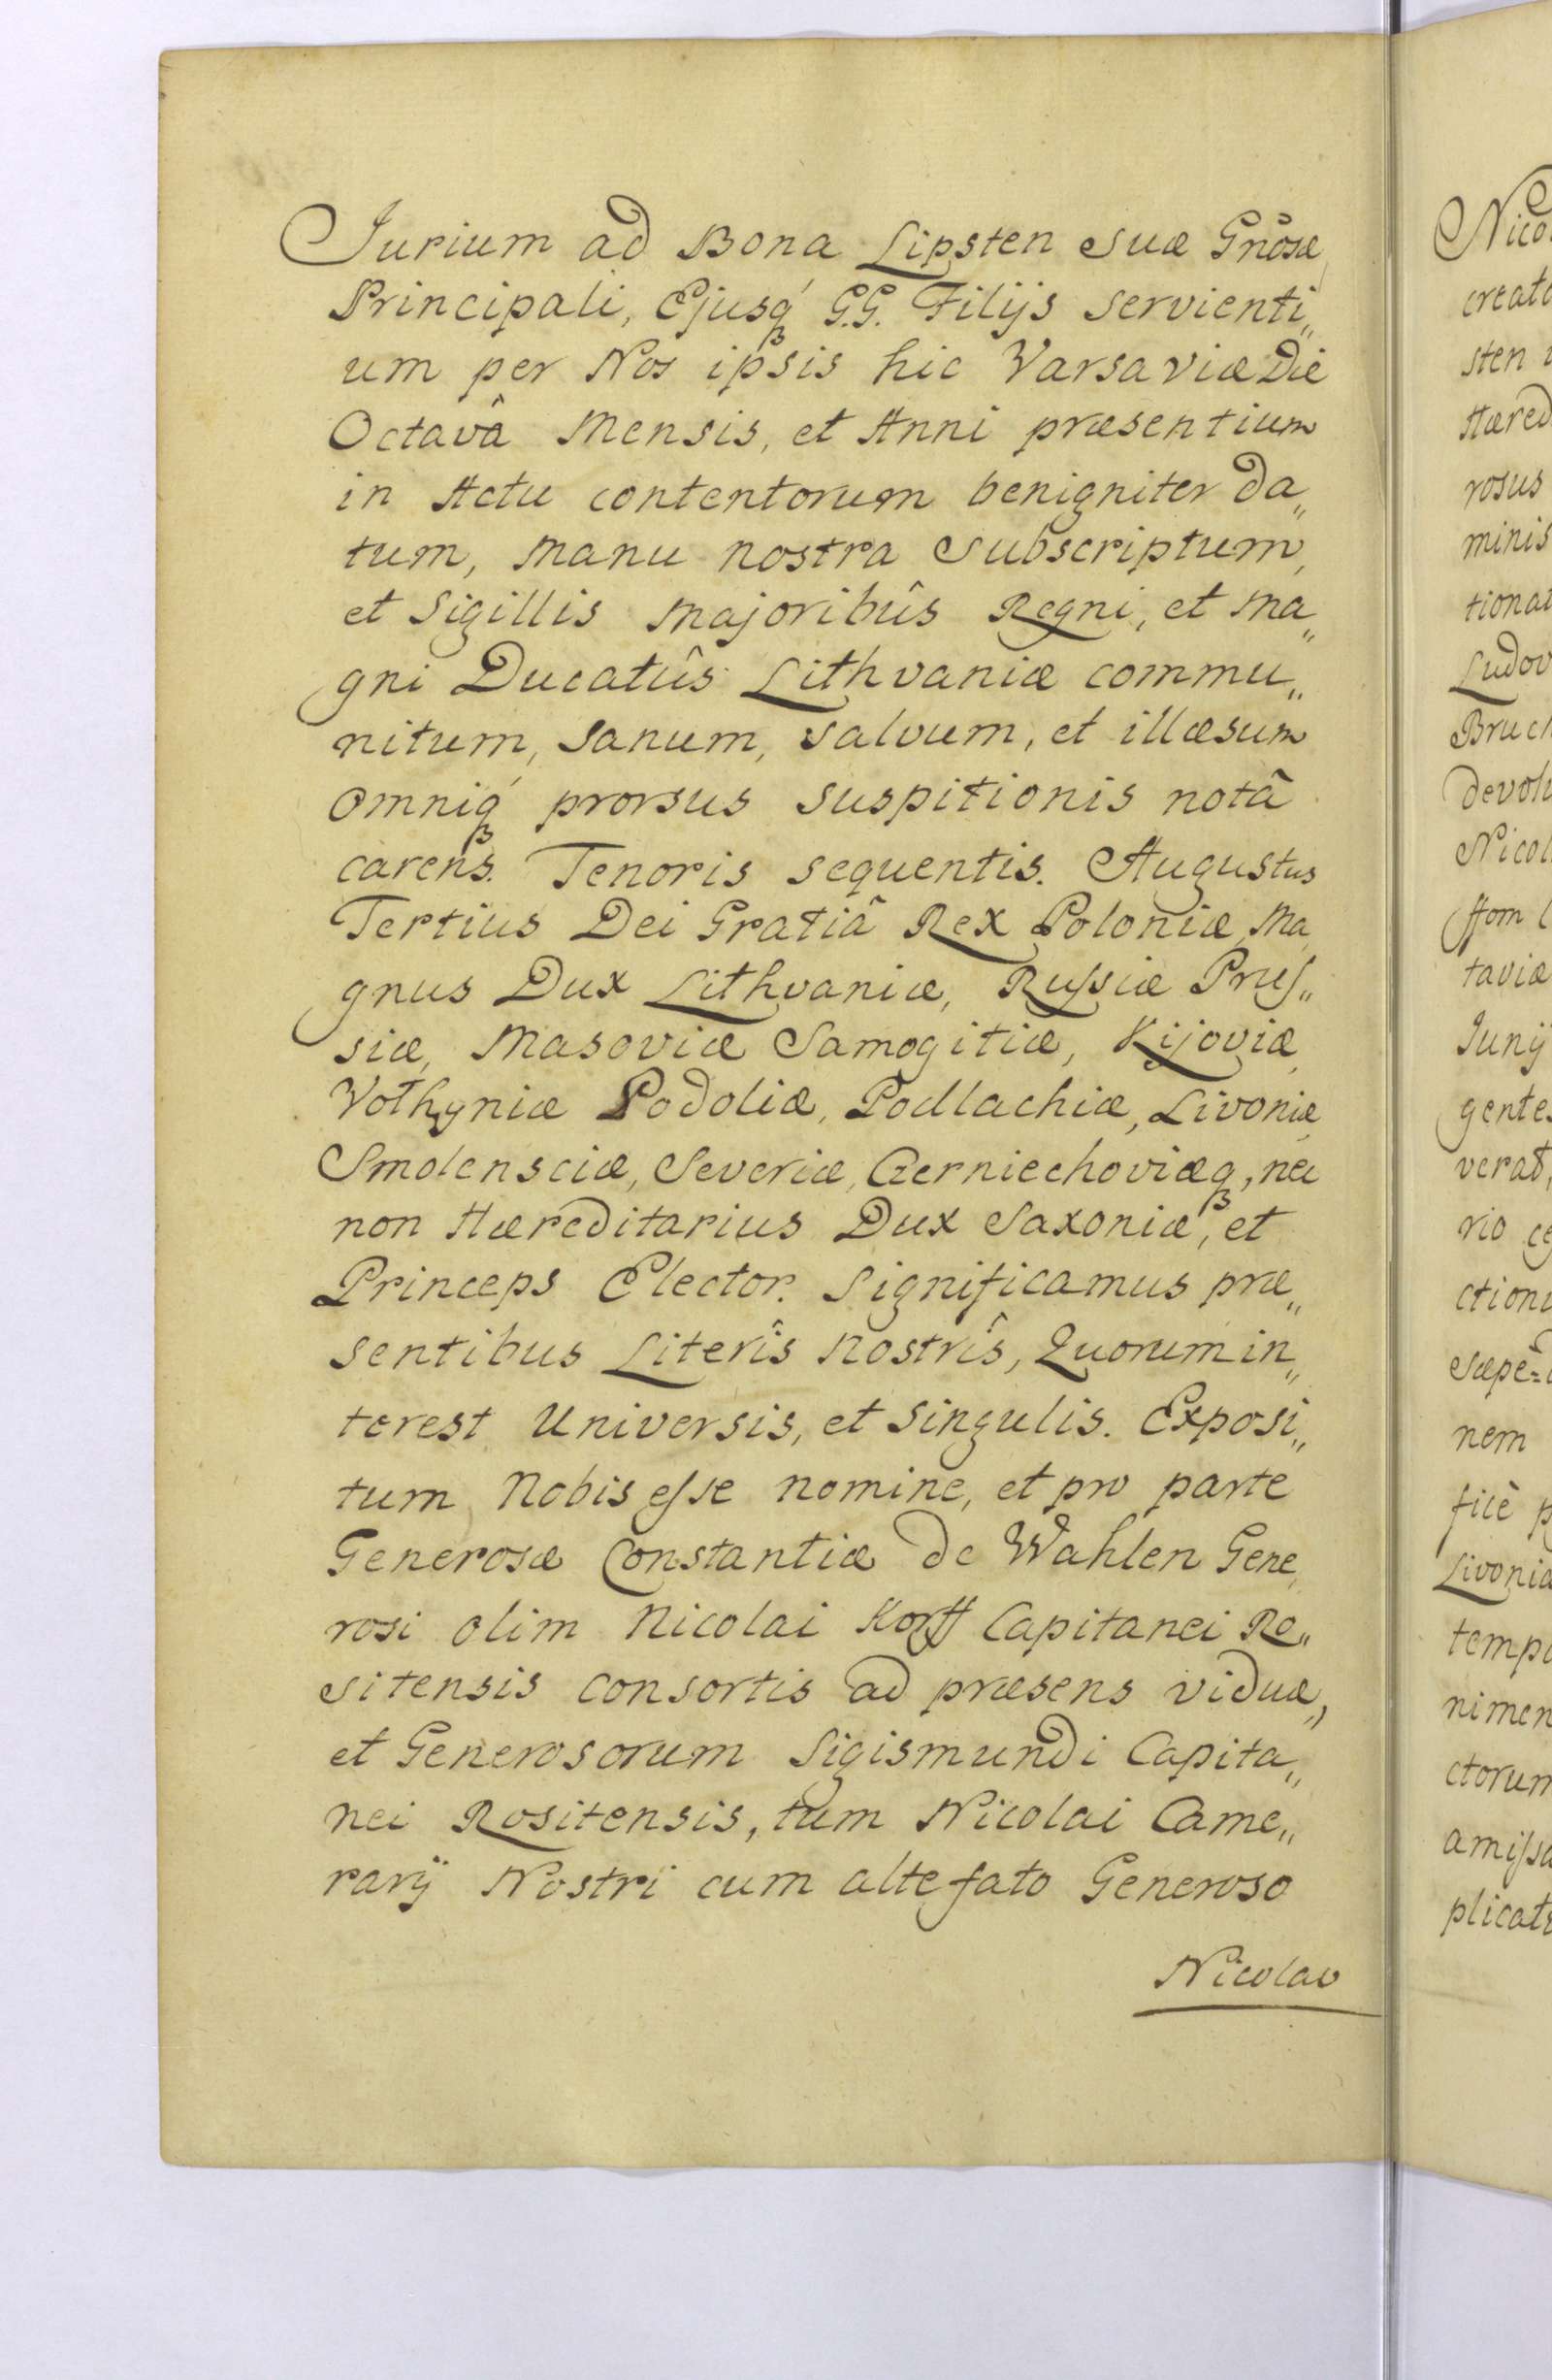 Jurium ad Bona Lipsten suæ Gnõsæ
Principali, Ejusq́ G.G. Filijs servienti„
um per Nos ipsis hic Varsaviæ Die
Octavâ Mensis, et Anni præsentium
in Actu contentorum benigniter da„
tum, Manu nostra Subscriptum,
et Sigillis Majoribûs Regni, et Ma„
gni Ducatûs Lithvaniæ commu„
nitum, sanum, salvum, et illæsum
omniq́ prorsus suspitionis notâ
carens. Tenoris sequentis. Augustus
Tertius Dei Gratiâ Rex Poloniæ, Ma„
gnus Dux Lithvaniæ, Russiæ Prus„
siæ, Masoviæ Samogitiæ, Kijoviæ,
Volhyniæ Podoliæ, Podlachiæ, Livoniæ,
Smolensciæ, Severiæ, Czerniechoviæq, nec
non Hæreditarius Dux Saxoniæ, et
Princeps Elector. Significamus præ„
sentibus Literîs Nostrîs, Quorum in„
terest Universis, et Singulis. Exposi„
tum Nobis esse nomine, et pro parte
Generosæ Constantiæ de Wahlen Gene„
rosi olim Nicolai Korff Capitanei Ro„
sitensis consortis ad præsens viduæ,
et Generosorum Sigismundi Capita„
nei Rositensis, tum Nicolai Came„
rarij Nostri cum altefato Generoso
Nicolao
Nico
creato
sten
Hæred
rosus
minis
tionat
Ludov
Bruch
devolu
Nicol
ffom
taviæ
Junij
gentes
verat,
rio
ctioni
Sæpe=
nem
ficè
Livoniæ
tempo
nimen
ctorum
amissa
plicat